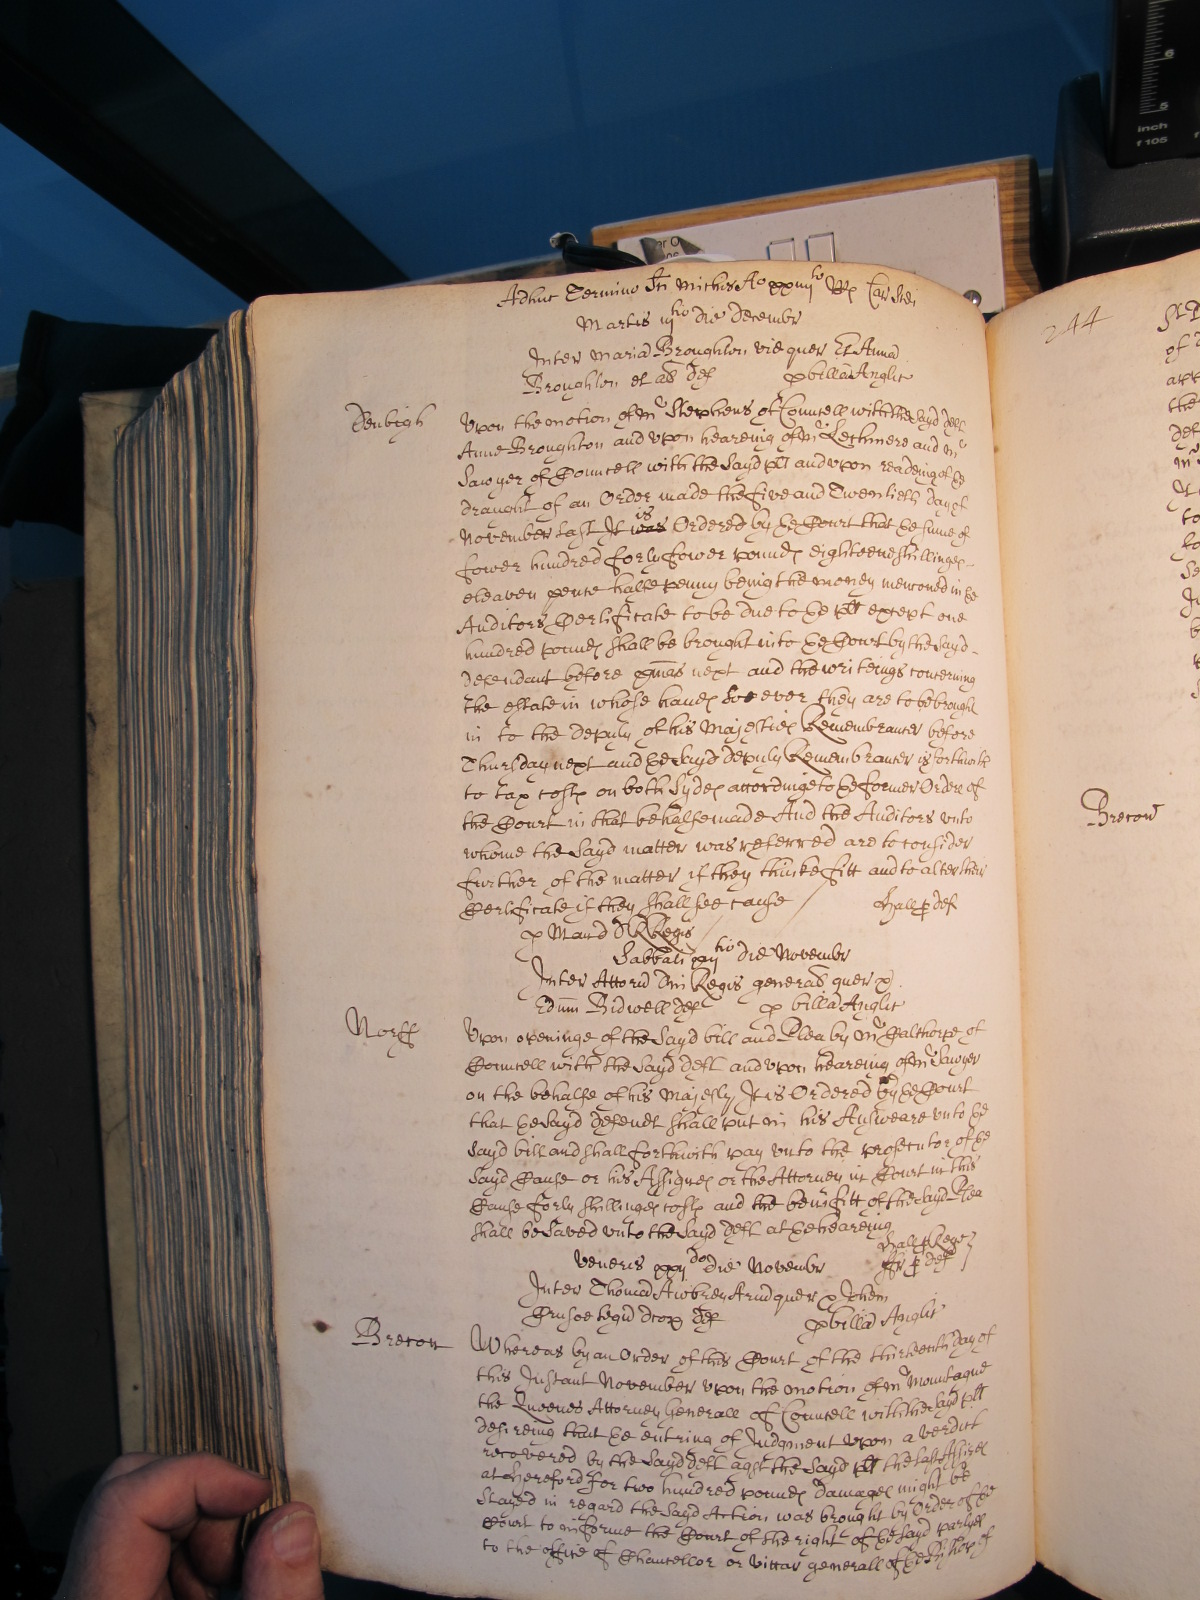 Adhuc Termino Sti Michis Ao xxiiijto Rx Car Scdi
Martis iijtio die Decembr
Inter Mariā Broughton vid quer Et Annā
Broughton et al def p billā Anglit
Denbigh
Upon the motion of Mr Stephens of Councell with the Sayd deft
Anne Broughton and upon heareing of Mr Lechmere and Mr
Sawyer of Councell with the Sayd plt and upon readeing of ye
draught of an Order made the five and Twentieth day of
November last It was is Ordered by ye Court that ye sume of
fower hundred forty fower pounds eighteene shillinges
eleaven pence halfe penny being the money menconed in ye
Auditors Certificate to be due to ye plt except one
hundred pounds shall be brought into ye Court by the Sayd
Defendant before xpmas next and the writeings concerning
the estate in whose hands soe ever they are to be brought
in to the deputy of his Majesties Remembrancer before
Thursday next and ye Sayd deputy Remembrancer is forthwith
to tax costs on both Sydes accordinge to ye former Order of
the Court in that behalfe made And the Auditors unto
whome the Sayd matter was referred are to consider
further of the matter if they thinke fitt and to alter their
Certificate if they shall see cause
Hall p def
p Mand D R Regis
Sabbati die Novembr
Inter Attorn Dni Regis general quer
Edm Bidwell def p billā Anglit
Norff
Upon openinge of the Sayd bill and Plea by Mr Calthorpe of
Councell with the Sayd deft and upon heareing of Mr Sawyer
on the behalfe of his Majesty It is Ordered by ye Court
that ye Sayd defendt shall put in his Answeare unto ye
Sayd bill and shall forthwith pay unto the prosecutor of ye
Sayd Cause or his Assignes or the Attorney in Court in this
Cause forty shillinges costs and the benifitt of the Sayd Plea
shall be Saved unto the Sayd deft at ye heareing
Hall p Rege
p def
Veneris xxijdo die Novembr
Inter Thomā Awbrey Arm quer Johem
Crusoe legū dcor def p billā Anglit
Brecon
Whereas by an Order of this Court of the thirteenth day of
this Instant November upon the motion of Mr Mountague
the Queenes Attorney Generall of Councell with the Sayd plt
desireing that ye entring of Judgment upon a verdict
recovered by the Sayd deft agst the Sayd plt the last Assizes
at Hereford for two hundred pounds Damages might be
Stayed in regard the Sayd Action was brought by Order of ye
Court to informe the Court of the right of ye Sayd partyes
to the office of Chancellor or viccar generall of ye Bishop of
244
Brecon
inch
f 105
6
5